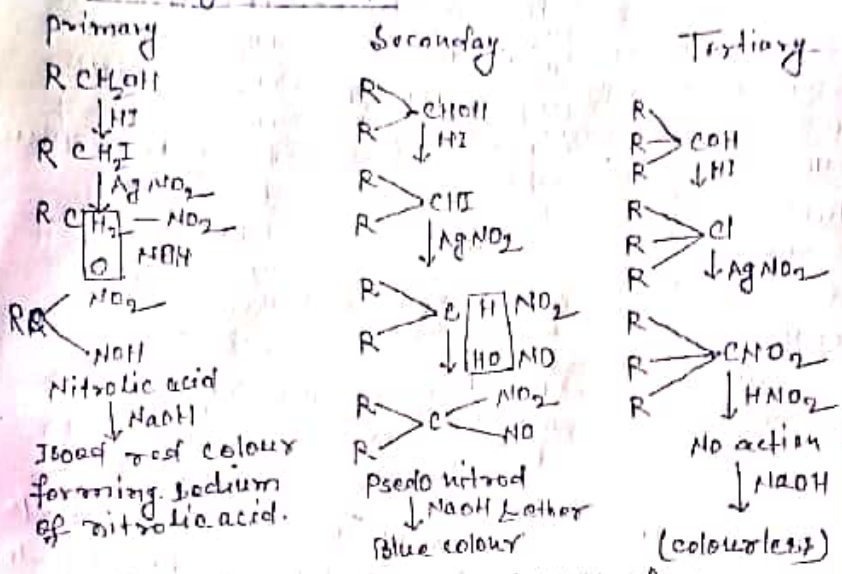 Primary
R CH2OH
↓HI
R CH2I
↓AgNO2
R CH2 — NO2
O NOH
RC NO2
NOH
Nitrolic acid
↓NaOH
Blood red colour
forming sodium
of nitrolic acid.
Seconday
R
R CHOH
↓HI
R
R CHI
↓AgNO2
R
R C H NO2
↓ HO NO
R
R C NO2
NO
Psedo nitrod
↓NaOH & other
Blue colour
Tertiary
R
R COH
R ↓HI
R
R CI
R ↓AgNO2
R
R CNO2
R ↓HNO2
No action
↓NaOH
(colourless)